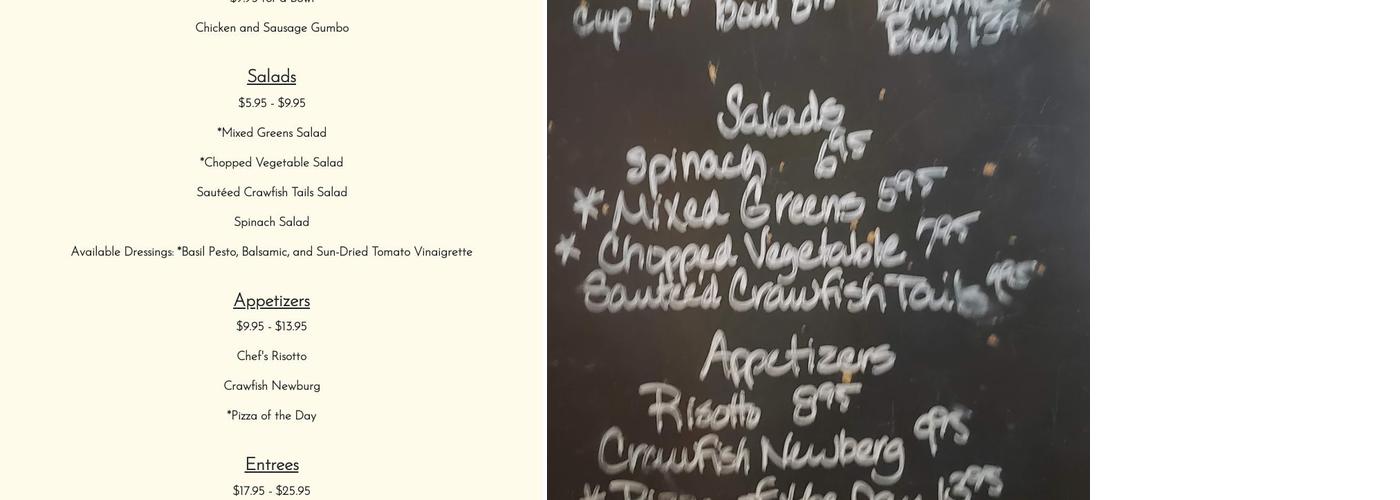 Chicken and Sausage Gumbo
Salads
$5.95 - $9.95
*Mixed Greens Salad
*Chopped Vegetable Salad
Sautéed Crawfish Tails Salad
Spinach Salad
Available Dressings: *Basil Pesto, Balsamic, and Sun-Dried Tomato Vinaigrette
Appetizers
$9.95 - $13.95
Chef's Risotto
Crawfish Newburg
*Pizza of the Day
Entrees
$17.95 - $25.95
Cup Bowl
Bowl
Salads
Spinach 6 95
* Mixed Greens 5 95
* Chopped Vegetable 7 95
Sauteed Crawfish Tails 9 95
Appetizers
Risotto 8 95
Crawfish Newberg 9 95
* Pizza of the Day